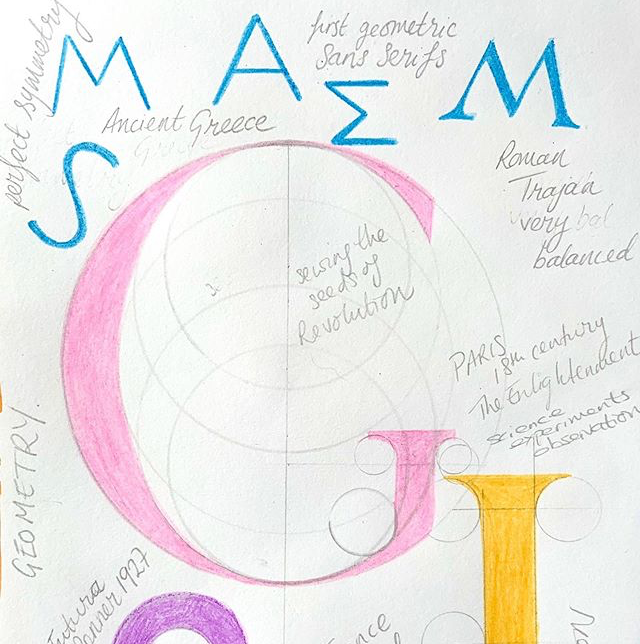 perfect symmetry
M A Σ M
first geometric
Sans Serifs
Ancient Greece
S
Roman
Trajan
very bal
balanced
G
sewing the
seeds of
Revolution
PARIS
18th century
The Enlightenment
science
experiments
observation
GEOMETRY.
Futura
Renner 1927